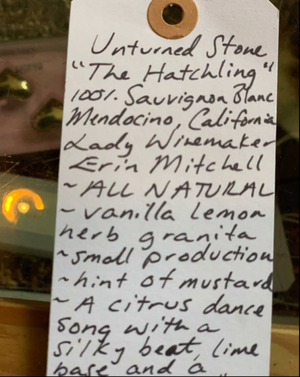 Unturned Stone
"The Hatchling"
100% Sauvignon Blanc
Mendocino, California
Lady Winemaker
Erin Mitchell
~ ALL NATURAL
~ vanilla lemon
herb granita
~ small production
~ hint of mustard
~ A citrus dance
song with a
silky beat, lime
base and a